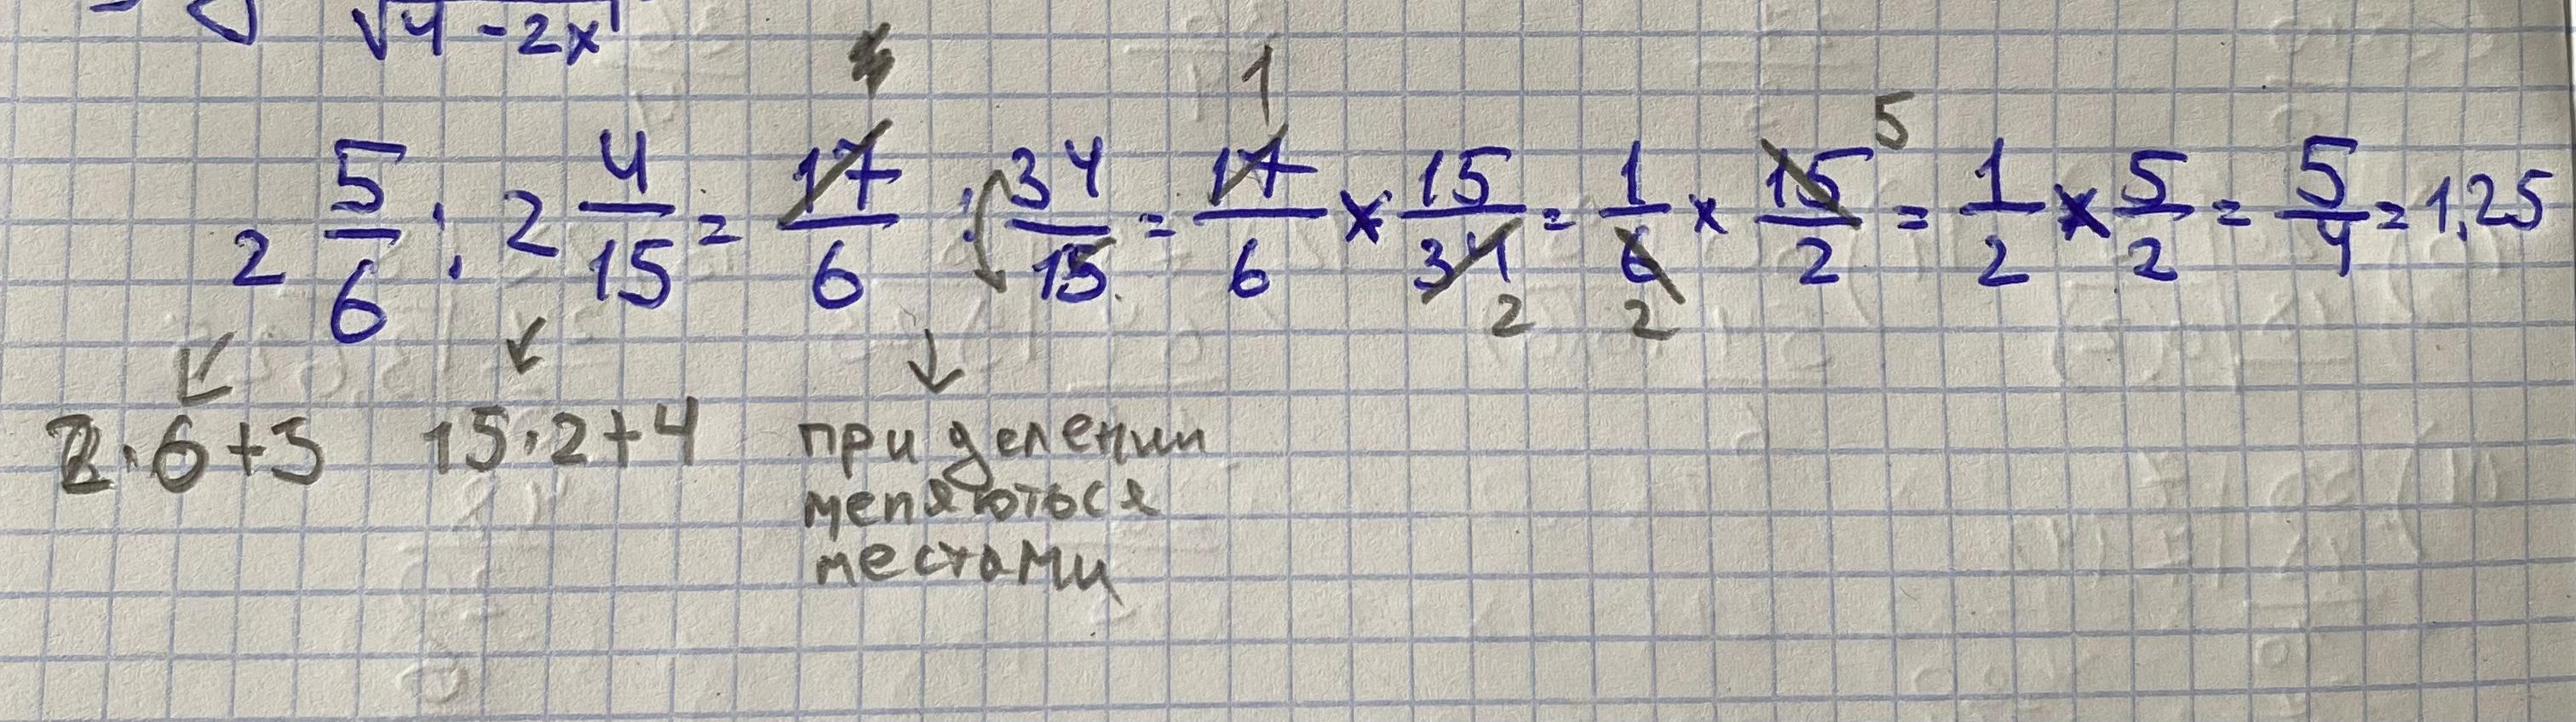 √4-2x
2 5/6 : 2 4/15 = 17/6 : 34/15 = 17/6 × 15/34 = 1/6 × 15/2 = 1/2 × 5/2 = 5/4 = 1,25
1
5
2
2
2·6+5 15·2+4 при делении
меняються
местами